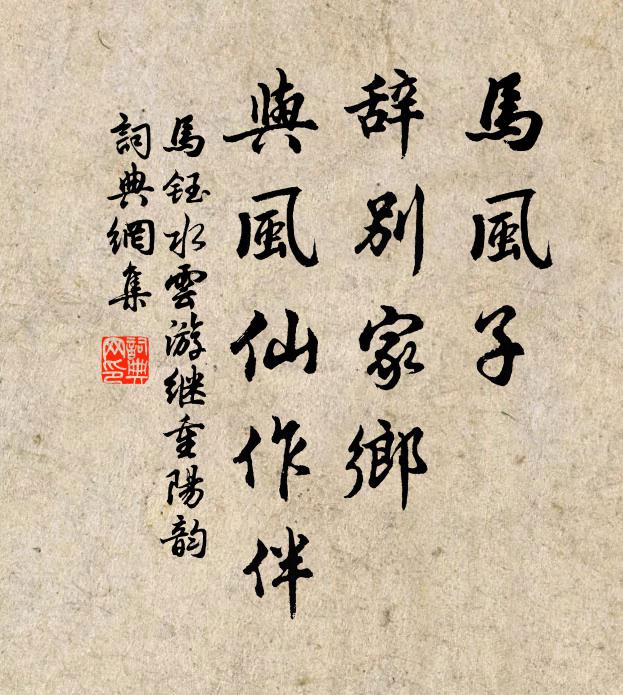 馬風子
辞別家鄉
與風仙作伴
馬鈺水雲游继重陽韵
詞典網集
詞典网印